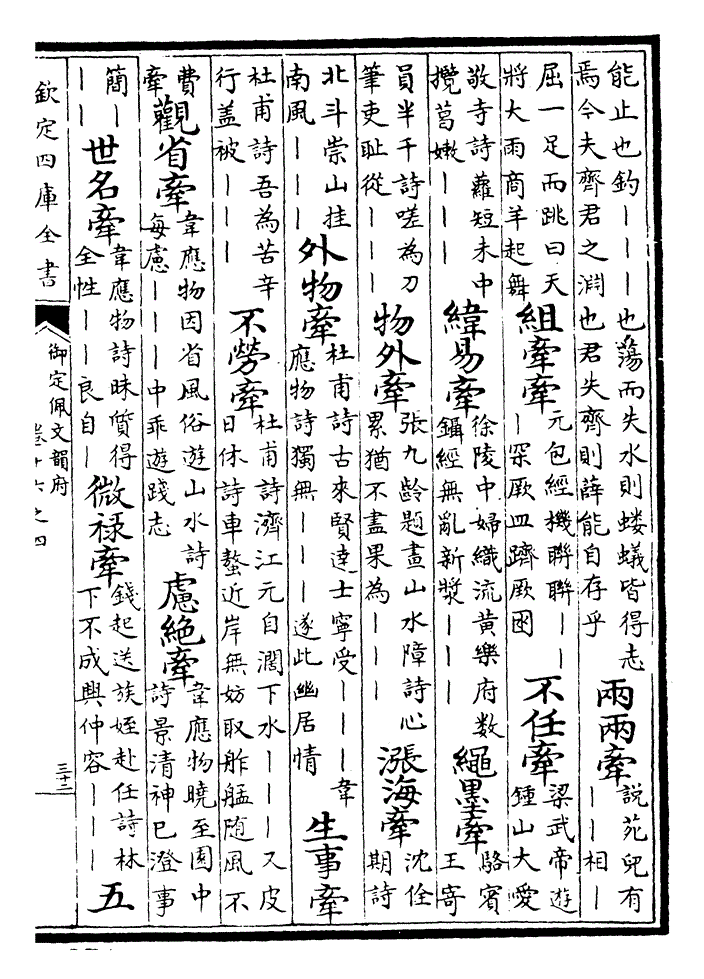 能止也釣｜｜｜也蕩而失水則螻蟻皆得志
焉今夫齊君之淵也君失齊則薛能自存乎
兩兩牽
說苑兒有
｜｜相｜
屈一足而跳曰天
將大雨商羊起舞
組牽牽
元包經機聯聯｜｜
｜罙厥皿躋厥囦
不任牽
梁武帝遊
鍾山大愛
敬寺詩蘿短未中
攬葛嫩｜｜｜
緯易牽
徐陵中婦織流黄樂府數
鑷經無亂新漿｜｜｜
繩墨牽
駱賓
王寄
員半千詩嗟為刀
筆吏恥從｜｜｜
物外牽
張九齡題畫山水障詩心
累猶不盡果為｜｜｜
漲海牽
沈佺
期詩
北斗崇山挂
南風｜｜｜
外物牽
杜甫詩古來賢達士寧受｜｜｜韋
應物詩獨無｜｜｜遂此幽居情
生事牽
杜甫詩吾為苦辛
行盖被｜｜｜
不勞牽
杜甫詩濟江元自濶下水｜｜｜又皮
日休詩車螯近岸無妨取舴艋随風不
費
牽
觀省牽
韋應物因省風俗遊山水詩
每慮｜｜｜中乖遊踐志
慮絶牽
韋應物曉至園中
詩景清神已澄事
簡｜
｜｜
世名牽
韋應物詩昧質得
全性｜｜良自｜
微禄牽
錢起送族姪赴任詩林
下不成興仲容｜｜｜
五
欽定四庫全書
御定佩文韻府
卷十六之四
三十三